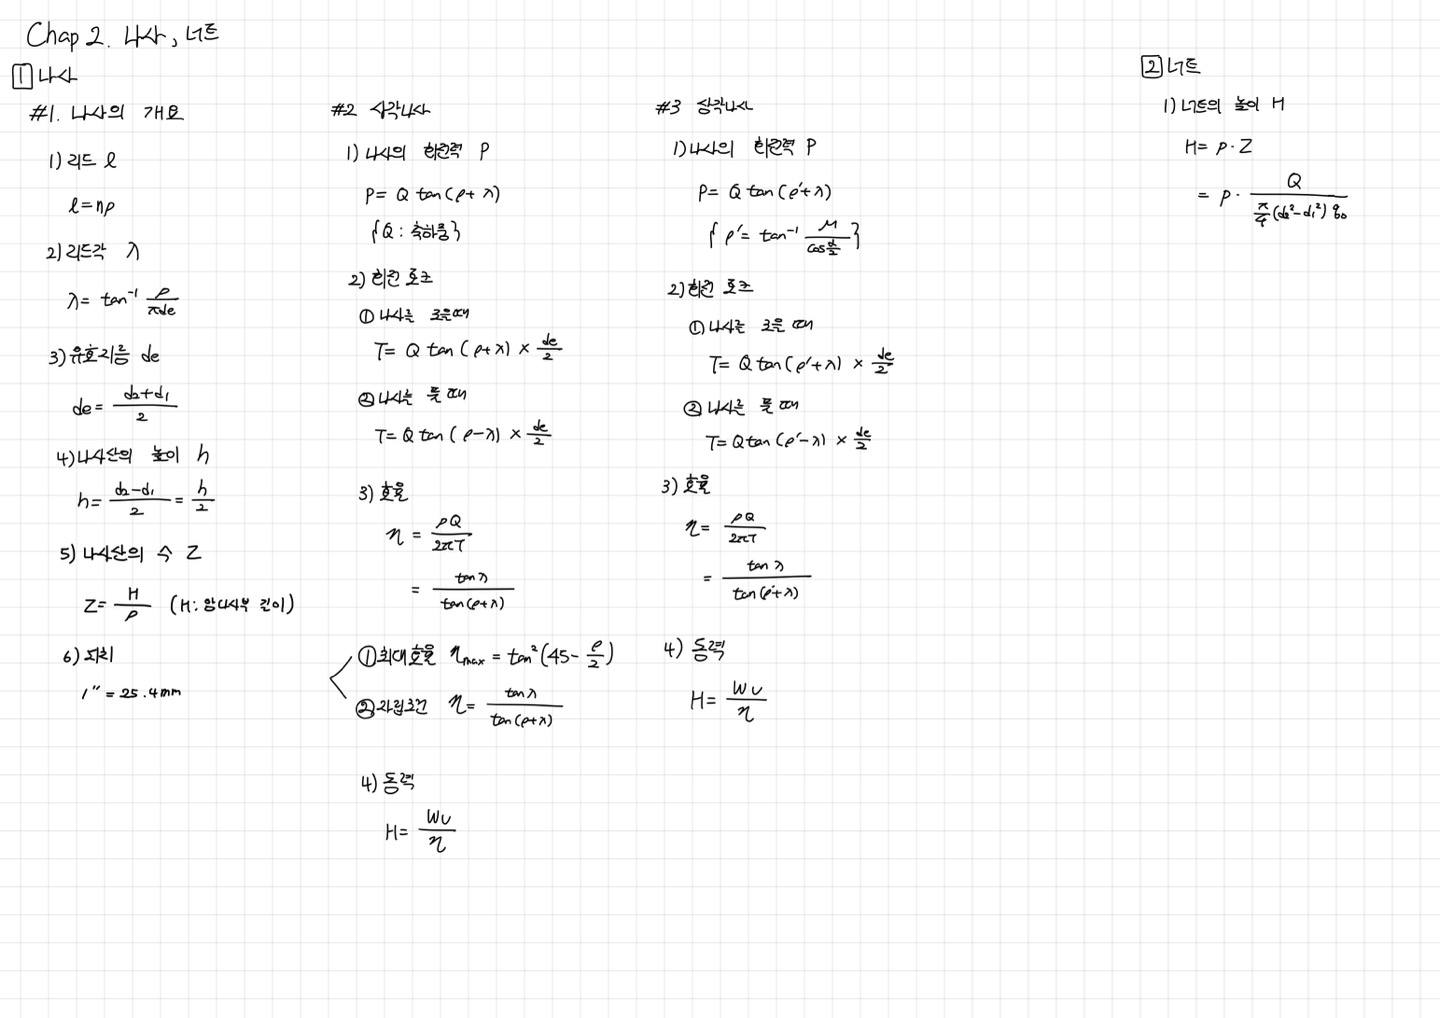 Chap 2. 나사, 너트
1 나사
#1. 나사의 개요
1) 리드 l
l = np
2) 리드각 λ
λ = tan⁻¹ p/πde
3) 유효지름 de
de = (d₂+d₁)/2
4) 나사산의 높이 h
h = (d₂-d₁)/2 = h/2
5) 나사산의 수 Z
Z = H/p (H: 암나사부 길이)
6) 인치
1″ = 25.4mm
#2 사각나사
1) 나사의 회전력 P
P = Q tan(ρ+λ)
{Q : 축하중}
2) 회전 토크
① 나사를 조을 때
T = Q tan(ρ+λ) × de/2
② 나사를 풀 때
T = Q tan(ρ-λ) × de/2
3) 효율
η = pQ/2πT
= tanλ/tan(ρ+λ)
① 최대효율 ηmax = tan²(45-ρ/2)
② 자립조건 η = tanλ/tan(ρ+λ)
4) 동력
H = Wυ/η
#3 삼각나사
1) 나사의 회전력 P
P = Q tan(ρ′+λ)
{ρ′ = tan⁻¹ μ/cos(α/2)}
2) 회전 토크
① 나사를 조을 때
T = Q tan(ρ′+λ) × de/2
② 나사를 풀 때
T = Q tan(ρ′-λ) × de/2
3) 효율
η = pQ/2πT
= tanλ/tan(ρ′+λ)
4) 동력
H = Wυ/η
2 너트
1) 너트의 높이 H
H = p·Z
= p · Q/(π/4(d₂²-d₁²) q₀)